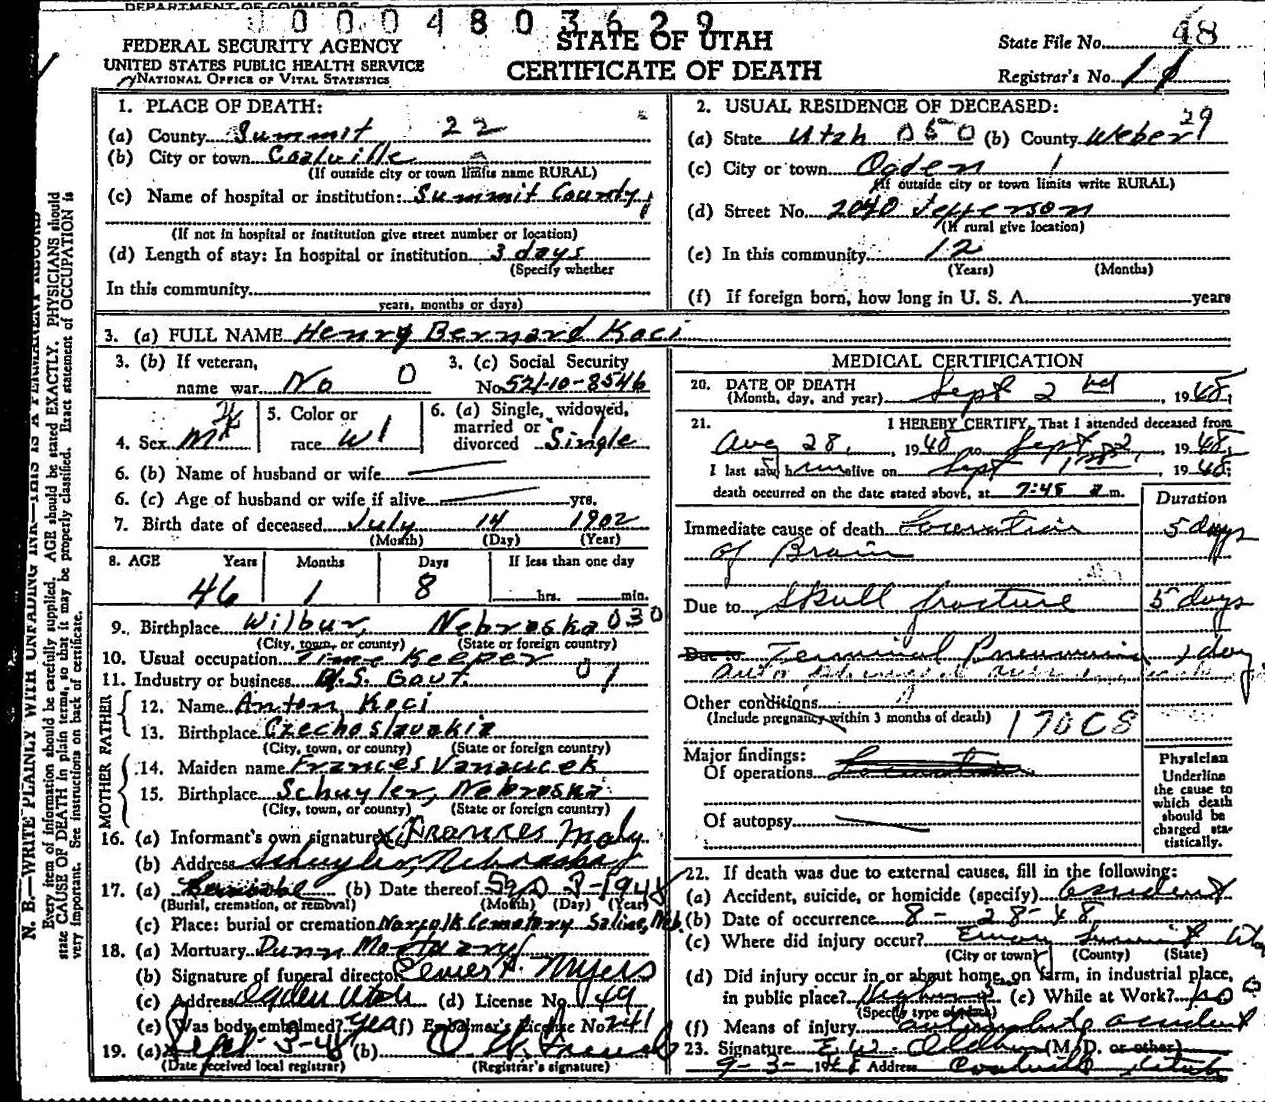 DEPARTMENT OF COMMERCE
10004803629
FEDERAL SECURITY AGENCY
UNITED STATES PUBLIC HEALTH SERVICE
NATIONAL OFFICE OF VITAL STATISTICS
STATE OF UTAH
CERTIFICATE OF DEATH
State File No. 48
Registrar's No. 11
N. B.—WRITE PLAINLY WITH UNFADING INK—THIS IS A PERMANENT RECORD
Every item of information should be carefully supplied. AGE should be stated EXACTLY. PHYSICIANS should
state CAUSE OF DEATH in plain terms, so that it may be properly classified. Exact statement of OCCUPATION is
very important. See instructions on back of certificate.
1. PLACE OF DEATH:
(a) County Summit 22
(b) City or town Coalville
(If outside city or town limits name RURAL)
(c) Name of hospital or institution: Summit County
(If not in hospital or institution give street number or location)
(d) Length of stay: In hospital or institution 3 days
(Specify whether
In this community
years, months or days)
2. USUAL RESIDENCE OF DECEASED:
(a) State Utah 050 (b) County Weber 29
(c) City or town Ogden 1
(If outside city or town limits write RURAL)
(d) Street No. 2040 Jefferson
(If rural give location)
(e) In this community 12
(Years) (Months)
(f) If foreign born, how long in U. S. A. years
3. (a) FULL NAME Henry Bernard Koci
3. (b) If veteran,
name war No 0
3. (c) Social Security
No. 521-10-8546
4. Sex M
5. Color or
race W 1
6. (a) Single, widowed,
married or
divorced Single
6. (b) Name of husband or wife
6. (c) Age of husband or wife if alive yrs.
7. Birth date of deceased July 14 1902
(Month) (Day) (Year)
8. AGE Years Months Days If less than one day
46 1 8 hrs. min.
9. Birthplace Wilbur, Nebraska 030
(City, town, or county) (State or foreign country)
10. Usual occupation Time Keeper
11. Industry or business U.S. Govt. 01
FATHER
12. Name Anton Koci
13. Birthplace Czechoslavakia
(City, town, or county) (State or foreign country)
MOTHER
14. Maiden name Frances Vanaucek
15. Birthplace Schuyler, Nebraska
(City, town, or county) (State or foreign country)
16. (a) Informant's own signature x Frances Maly
(b) Address Schuyler, Nebraska
17. (a) (b) Date thereof Sep 3-1948
(Burial, cremation, or removal) (Month) (Day) (Year)
(c) Place: burial or cremation Cemetery Saline, Neb.
18. (a) Mortuary Dunn Mortuary
(b) Signature of funeral director Myers
(c) Address Ogden Utah (d) License No. 149
(e) Was body embalmed? Yes (f) Embalmer's License No. 241
19. (a) Sept-3-48 (b)
(Date received local registrar) (Registrar's signature)
MEDICAL CERTIFICATION
20. DATE OF DEATH
(Month, day, and year) Sept 2nd, 1948;
21. I HEREBY CERTIFY, That I attended deceased from
Aug 28, 1948, to Sept 2, 1948;
I last saw him alive on Sept 1, 1948;
death occurred on the date stated above, at 7:45 a m.
Duration
Immediate cause of death Laceration 5 days
of Brain
Due to Skull fracture 5 days
Due to Terminal Pneumonia 1 day
Other conditions
(Include pregnancy within 3 months of death) 170C8
Major findings:
Of operations
Of autopsy
Physician
Underline
the cause to
which death
should be
charged sta-
tistically.
22. If death was due to external causes, fill in the following:
(a) Accident, suicide, or homicide (specify) Accident
(b) Date of occurrence 8-28-48
(c) Where did injury occur? Emory Summit Utah
(City or town) (County) (State)
(d) Did injury occur in or about home, on farm, in industrial place,
in public place? Highway (e) While at Work? no 0
(Specify type of place)
(f) Means of injury automobile accident
23. Signature E.W. Oldham (M. D. or other)
9-3-1948 Address Coalville Utah